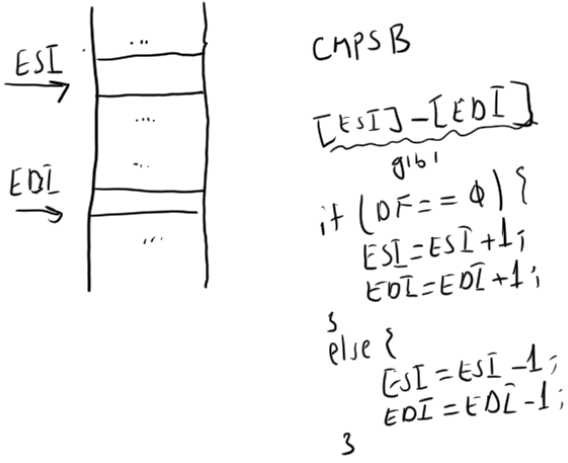 ...
ESI
....
...
EDI
...
CMPSB
[ESI] - [EDI]
gibi
if (DF == 0) {
ESI = ESI + 1;
EDI = EDI + 1;
}
else {
ESI = ESI - 1;
EDI = EDI - 1;
}